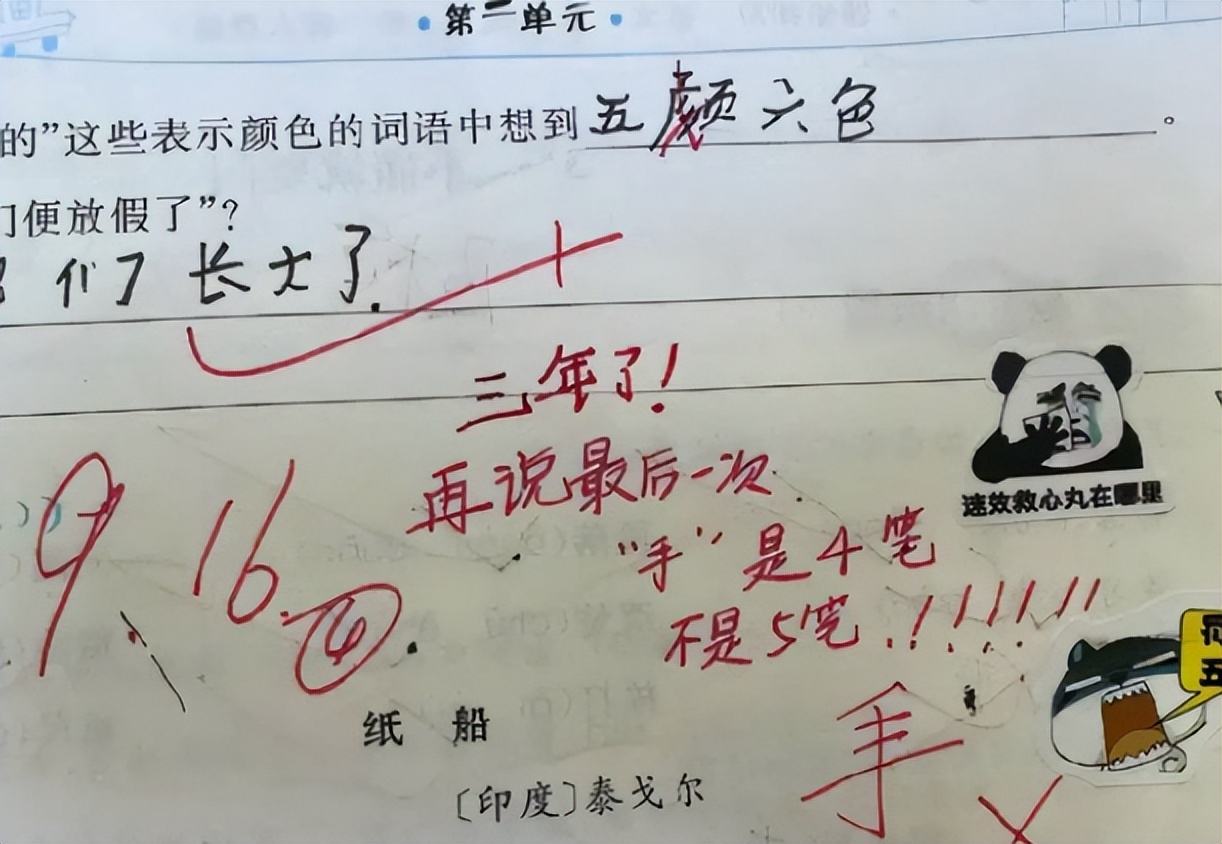 第二单元
的”这些表示颜色的词语中想到五颜六色。
们便放假了”?
们了长大了.
三年了!
再说最后一次.
“手”是4笔
不是5笔.!!!!!!
速效救心丸在哪里
9.16.④.
手
纸 船
〔印度〕泰戈尔